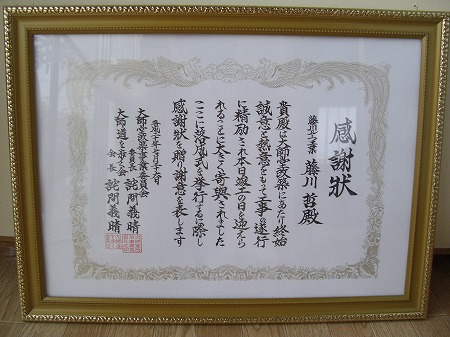 感謝状
藤川工業 藤川 哲殿
貴殿は大師堂改築にあたり終始
誠意と熱意をもって工事の遂行
に精励され本日竣工の日を迎えら
れることに大きく寄与されました
ここに落慶式を挙行するに際し
感謝状を贈り謝意を表します
大師堂改築事業委員会
委員長 詫間義晴
大師道を歩く会
会長 詫間義晴